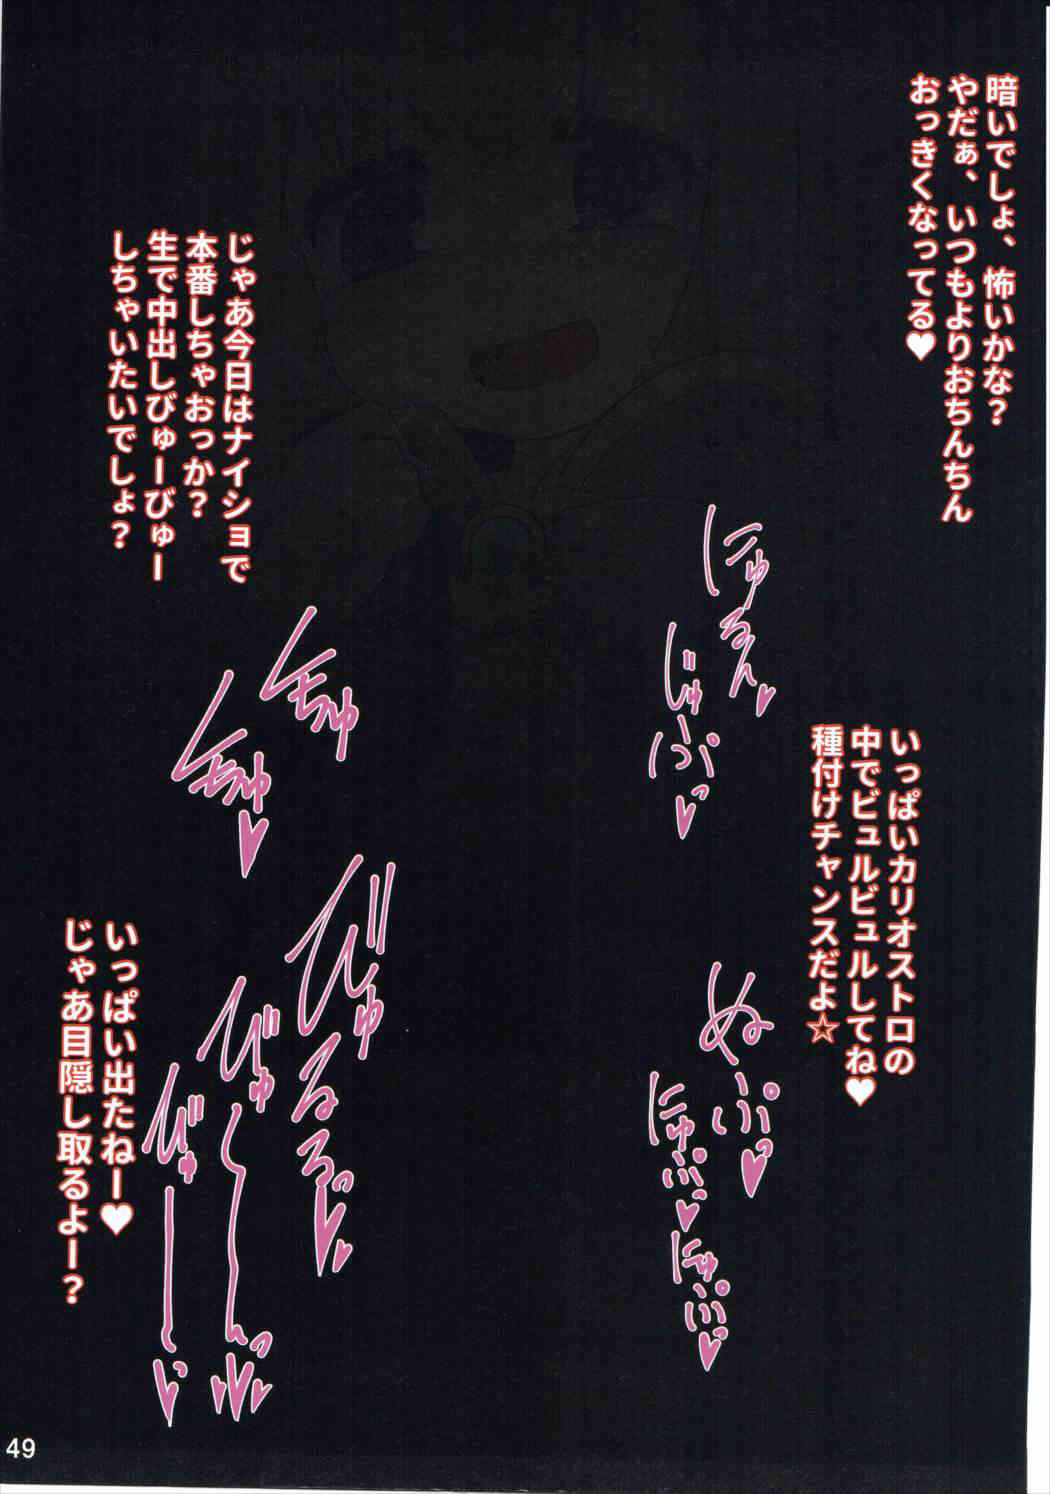 暗いでしょ、怖いかな？
やだぁ、いつもよりおちんちん
おっきくなってる♥
じゃあ今日はナイショで
本番しちゃおっか？
生で中出しびゅーびゅー
しちゃいたいでしょ？
にゅるん♥
じゅぷっ♥
くちゅ
くちゅ♥
いっぱいカリオストロの
中でビュルビュルしてね♥
種付けチャンスだよ☆
ぬぷぷっ♥
にゅぷぷっ♥
にゅぷぷっ♥
びゅるるるっ♥
びゅ～～んっ♥♥♥
びゅ――～っ♥
いっぱい出たねー♥
じゃあ目隠し取るよー？
49